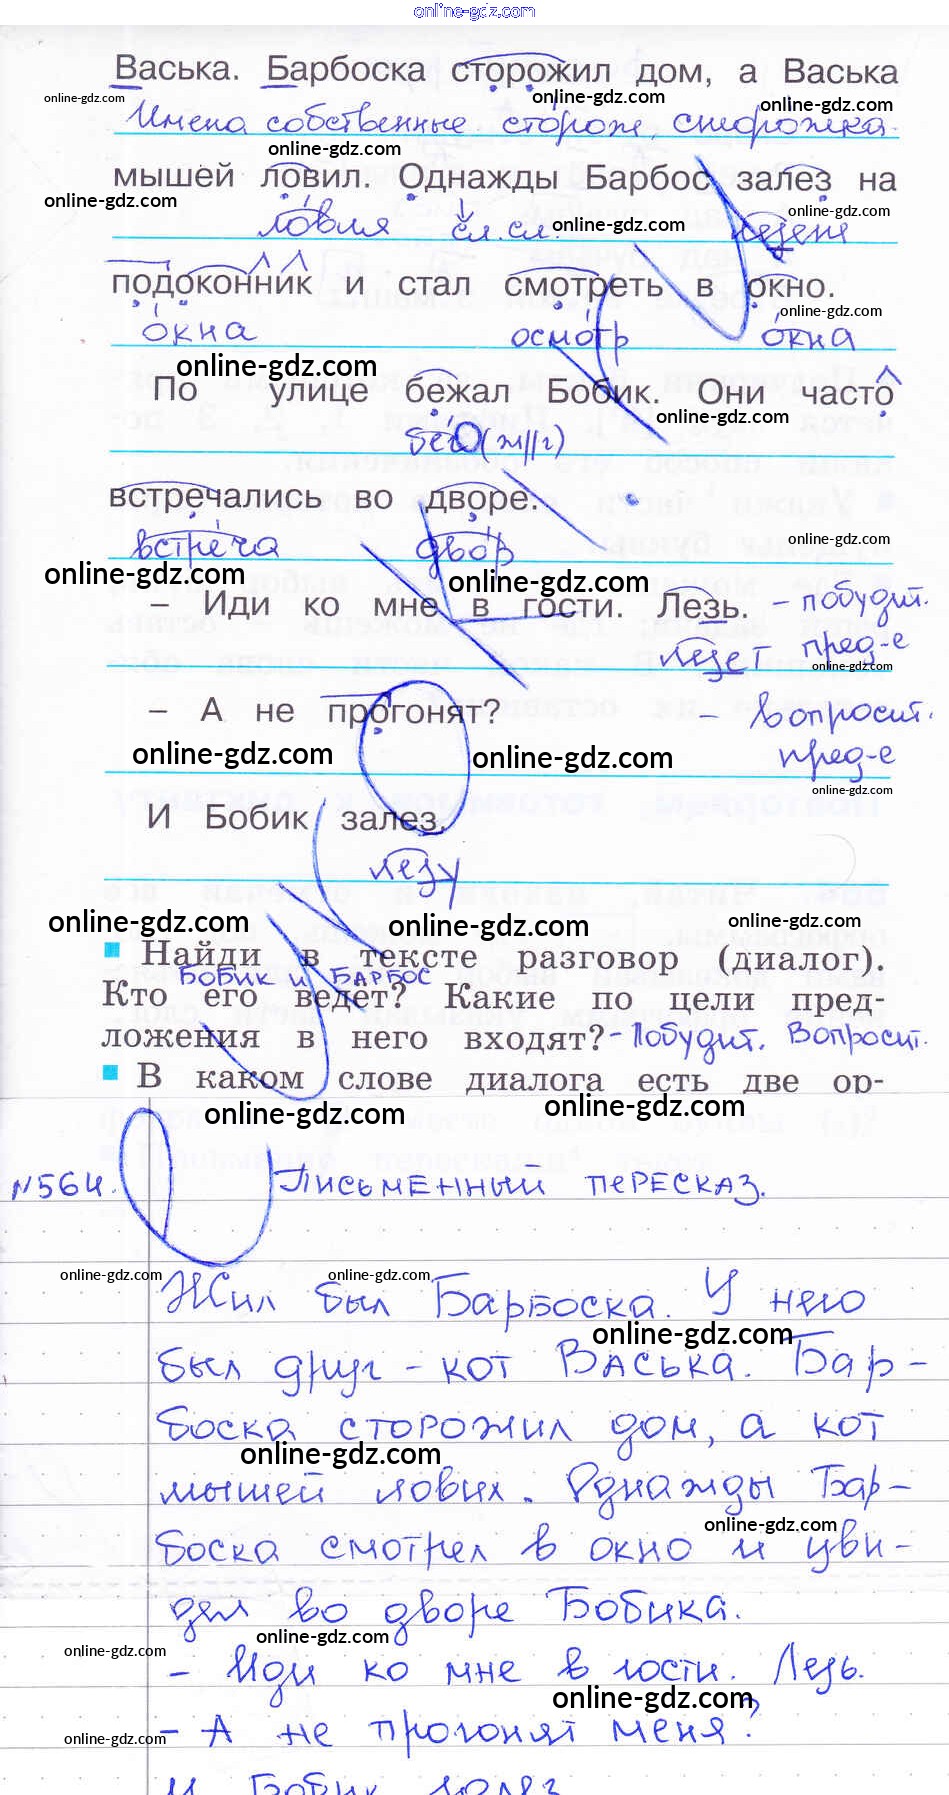 online-gdz.com
Васька. Барбоска сторожил дом, а Васька
online-gdz.com online-gdz.com online-gdz.com
Имена собственные. сторож, сторожка.
online-gdz.com
мышей ловил. Однажды Барбос залез на
online-gdz.com online-gdz.com online-gdz.com
ловля сл. сл. лезет
подоконник и стал смотреть в окно.
online-gdz.com
о́кна осмо́тр о́кна
online-gdz.com
По улице бежал Бобик. Они часто
online-gdz.com
бег (ж//г)
встречались во дворе.
встре́ча дво́р online-gdz.com
online-gdz.com online-gdz.com
– Иди ко мне в гости. Лезь. – побудит.
лезет пред-е
online-gdz.com
– А не прогонят? – Вопросит.
online-gdz.com online-gdz.com пред-е
online-gdz.com
И Бобик залез.
лезу
online-gdz.com online-gdz.com online-gdz.com
Найди в тексте разговор (диалог).
Бобик и Барбос
Кто его ведёт? Какие по цели пред-
ложения в него входят? – Побудит. Вопросит.
В каком слове диалога есть две ор-
online-gdz.com online-gdz.com
№564. Письменный пересказ.
online-gdz.com online-gdz.com
Жил был Барбоска. У него
online-gdz.com
был друг – кот Васька. Бар-
боска сторожил дом, а кот
online-gdz.com
мышей ловил. Однажды Бар-
online-gdz.com
боска смотрел в окно и уви-
дел во дворе Бобика.
online-gdz.com online-gdz.com
– Иди ко мне в гости. Лезь.
online-gdz.com
– А не прогонят меня?
online-gdz.com
И Бобик залез